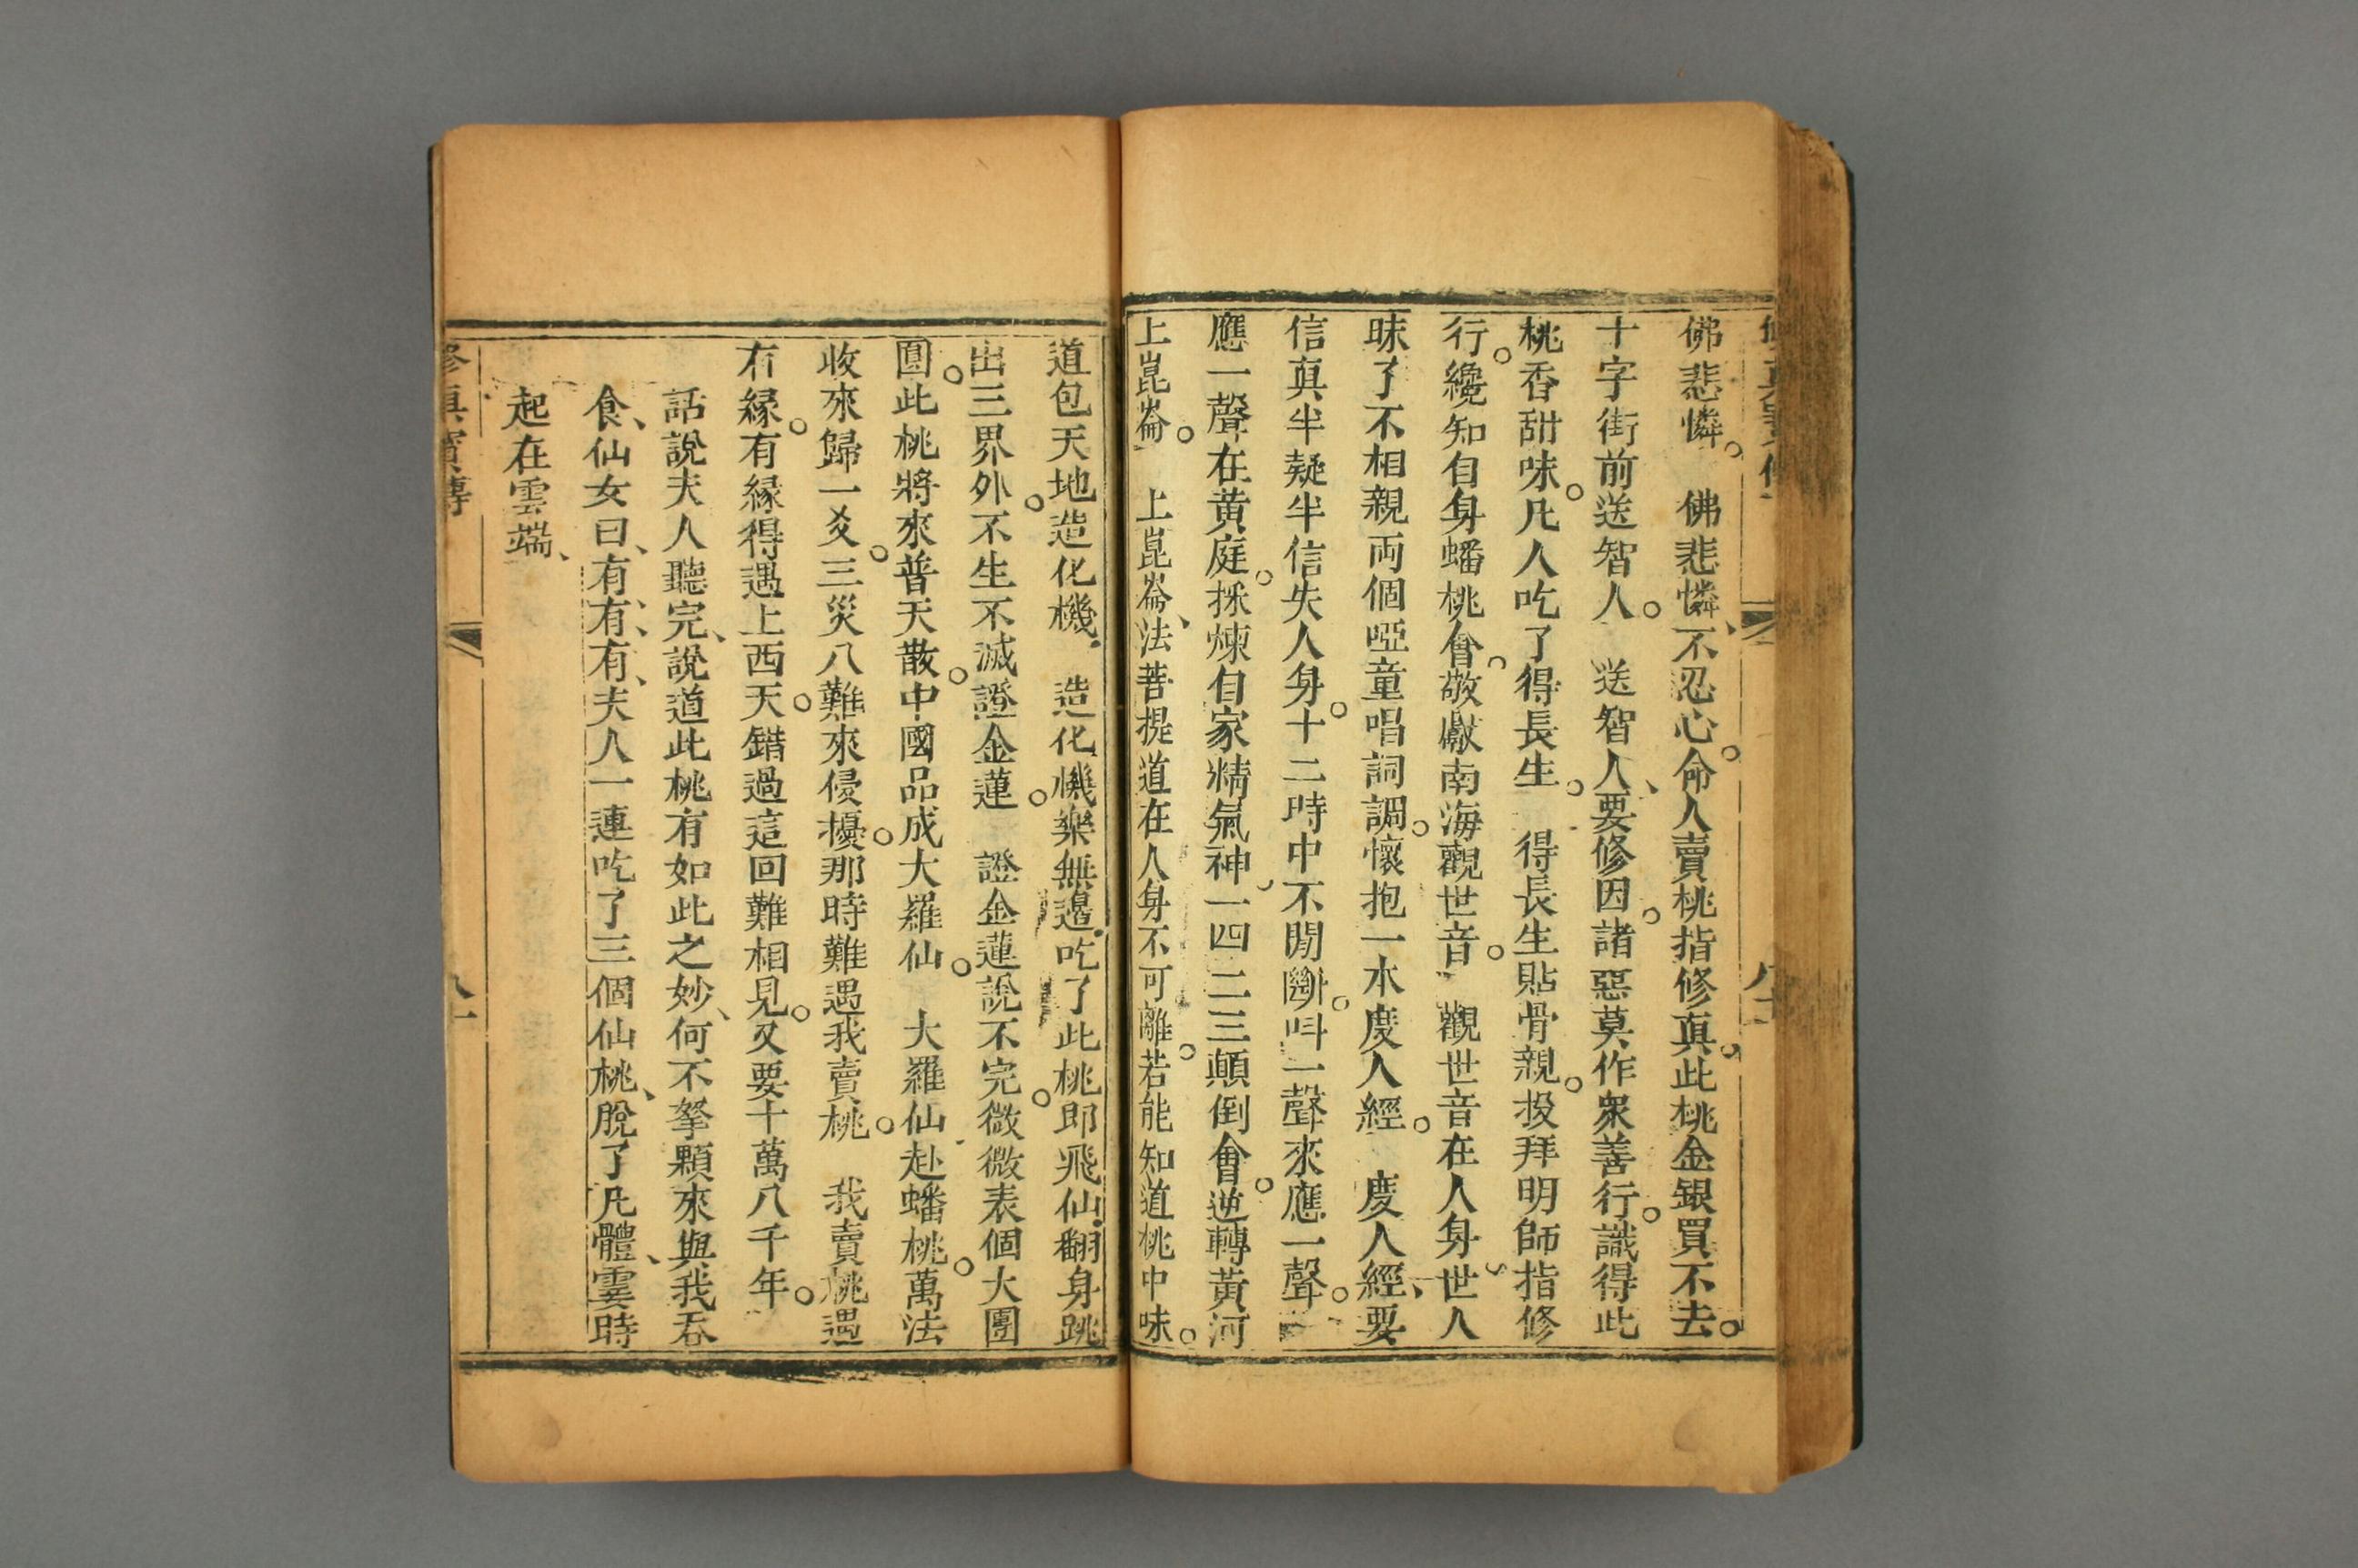 佛悲憐。　佛悲憐、不忍心。命人賣桃指修真。此桃金銀買不去。
十字街前送智人。　送智人、要修因。諸惡莫作衆善行。識得此
桃香甜味。凡人吃了得長生。　得長生貼骨親。投拜明師指修
行。纔知自身蟠桃會。敬獻南海觀世音。　觀世音在人身世人
昧了不相親両個啞童唱詞調。懷抱一木度人經。　度人經、要
信真半疑半信失人身。十二時中不間斷。呌一聲來應一聲。
應一聲在黄庭。採煉自家精氣神一四二三顛倒會。逆轉黃河
上崑崙。　上崑崙、法菩提道在人身不可離。若能知道桃中味。
道包天地造化機.　造化機。樂無邉.吃了此桃即飛仙.翻身跳
出三界外。不生不滅證金蓮　證金蓮說不完。微微表個大團
圓。此桃將來普天散。中國品成大羅仙。　大羅仙赴蟠桃。萬法
收來歸一爻。三災八難來侵擾。那時難遇我賣桃。　我賣桃遇
有緣。有緣得遇上西天。錯過這回難相見。又要十萬八千年。
話說夫人聽完、說道此桃有如此之妙、何不拏顆來與我吞
食、仙女曰、有、有、有、夫人一連吃了三個仙桃、脫了凡體、霎時
起在雲端、
修真寶傳